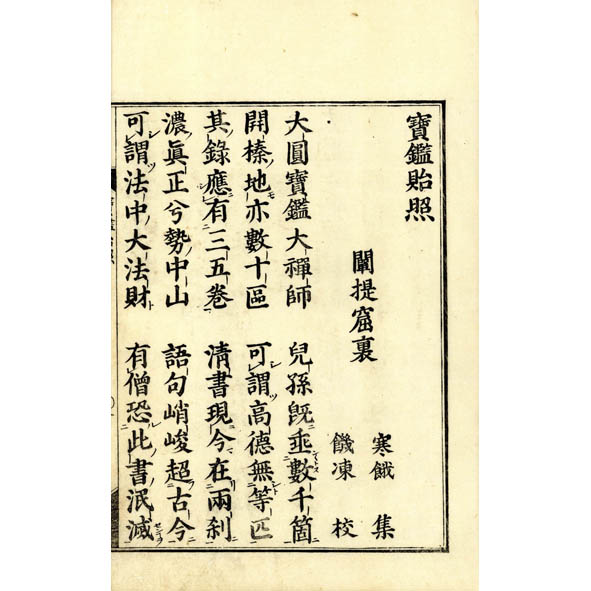 寶鑑貽照
闡提窟裏
寒餓 集
饑凍 校
大圓寶鑑大禪師 兒孫既埀數千箇
開榛地亦數十區 可謂高德無等匹
其錄應有三五卷 清書現今在兩刹
濃眞正兮勢中山 語句峭峻超古今
可謂法中大法財 有僧恐此書泯滅